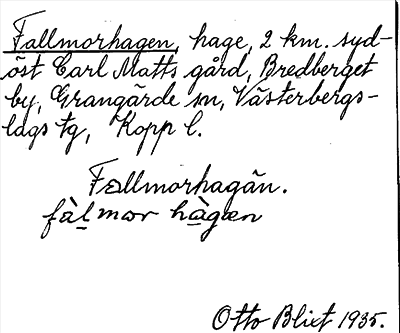 Fallmorhagen, hage, 2 km. syd-
öst Carl Matts gård, Bredberget
by, Grangärde sn, Västerbergs-
lags tg, Kopp l.
Fallmorhagän.
fàl mor hàgæn
Otto Blixt 1935.